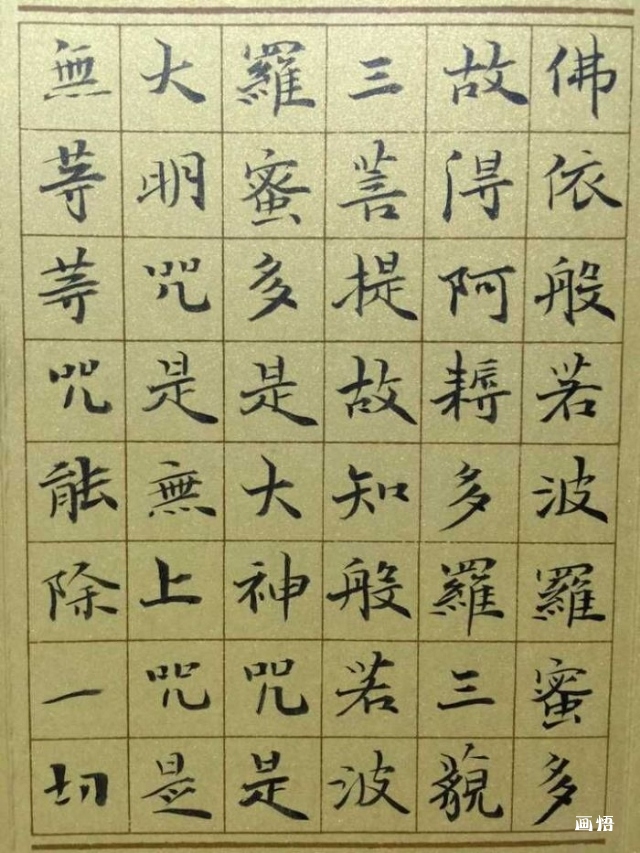 佛依般若波羅蜜多
故得阿耨多羅三藐
三菩提故知般若波
羅蜜多是大神咒是
大明咒是無上咒是
無等等咒能除一切
画悟